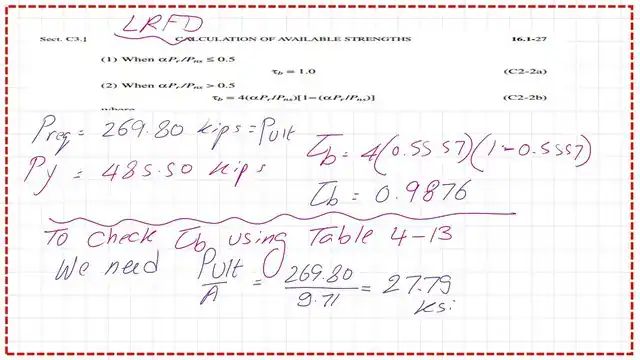 LRFD
Sect. C3.] CALCULATION OF AVAILABLE STRENGTHS 16.1-27
(1) When αPr/Pns ≤ 0.5
τb = 1.0 (C2-2a)
(2) When αPr/Pns > 0.5
τb = 4(αPr/Pns)[1−(αPr/Pns)] (C2-2b)
where
Preq = 269.80 kips = Pult
Py = 485.50 kips
τb = 4(0.5557)(1-0.5557)
τb = 0.9876
To check τb using Table 4-13
We need Pult/A = 269.80/9.71 = 27.79 ksi